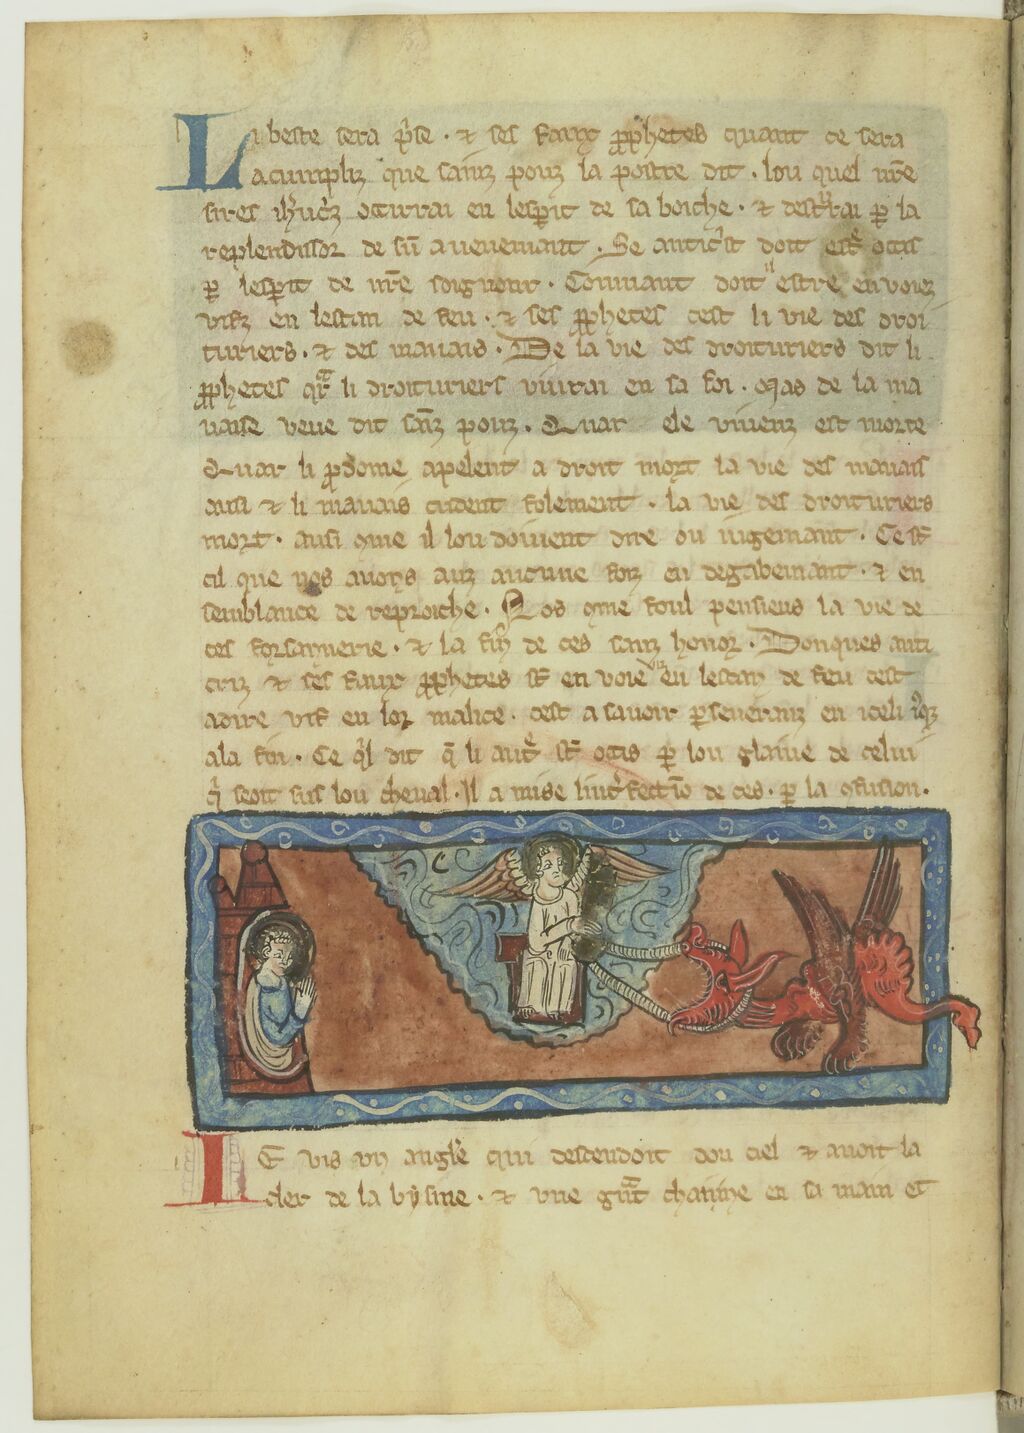 Li beste sera p̾se . ⁊ ses faux ꝓphetes quant ce sera
acumpliz que sainz pouz la postre dit . lou quel nr̄e
sires ih̾uc̾z occirrai en lesꝑit de sa boiche . ⁊ destͬrai ꝑ la
replendissor de sū avenemant . Se antic̾st doit est̾ ocis
ꝑ lesꝑit de nr̄e soignour . Commant doit estre en voiez
vis en lestan de feu . ⁊ ses ꝓphetes cest li vie des droi
turiers . ⁊ des mauais . De la vie des droituriers dit li
ꝓphetes qͬr li droituriers viurai en sa foi . Mas de la ma
uaise veue dit sainz pouz . Quar ele vivenz est morte
Quar li ꝓdome apelent a droit mort la vie des mauais
ausi ⁊ li mauais cudent folement . la vie des droituriers
mort . ausi ꝯme il lou doiuent dire ou iugemant . Ce st̄
cil que nos avons auz aucune foiz en degabemant . ⁊ en
semblance de reproiche . Nos ꝯme foul pensiens la vie de
ces forsannerie . ⁊ la fin de ces sanz honor . Donques anti
criz ⁊ ses faux ꝓphetes st̄ en voie viz en lestan de feu cest
adire vis en lor malice . cest a savoir ꝑseveranz en iceli
a la fin . Ce q̾l dit q̄ li aut̾ st̄ ocis ꝑ lou glaiue de celui
q̾ seoit sus lou cheual . Il a mise lint̾fectiō de ces . ꝑ la ꝯfusion .
IE vis un angle qui descendoit dou ciel ⁊ avoit la
clef de la bysme . ⁊ une gͣnt chainne en sa main et